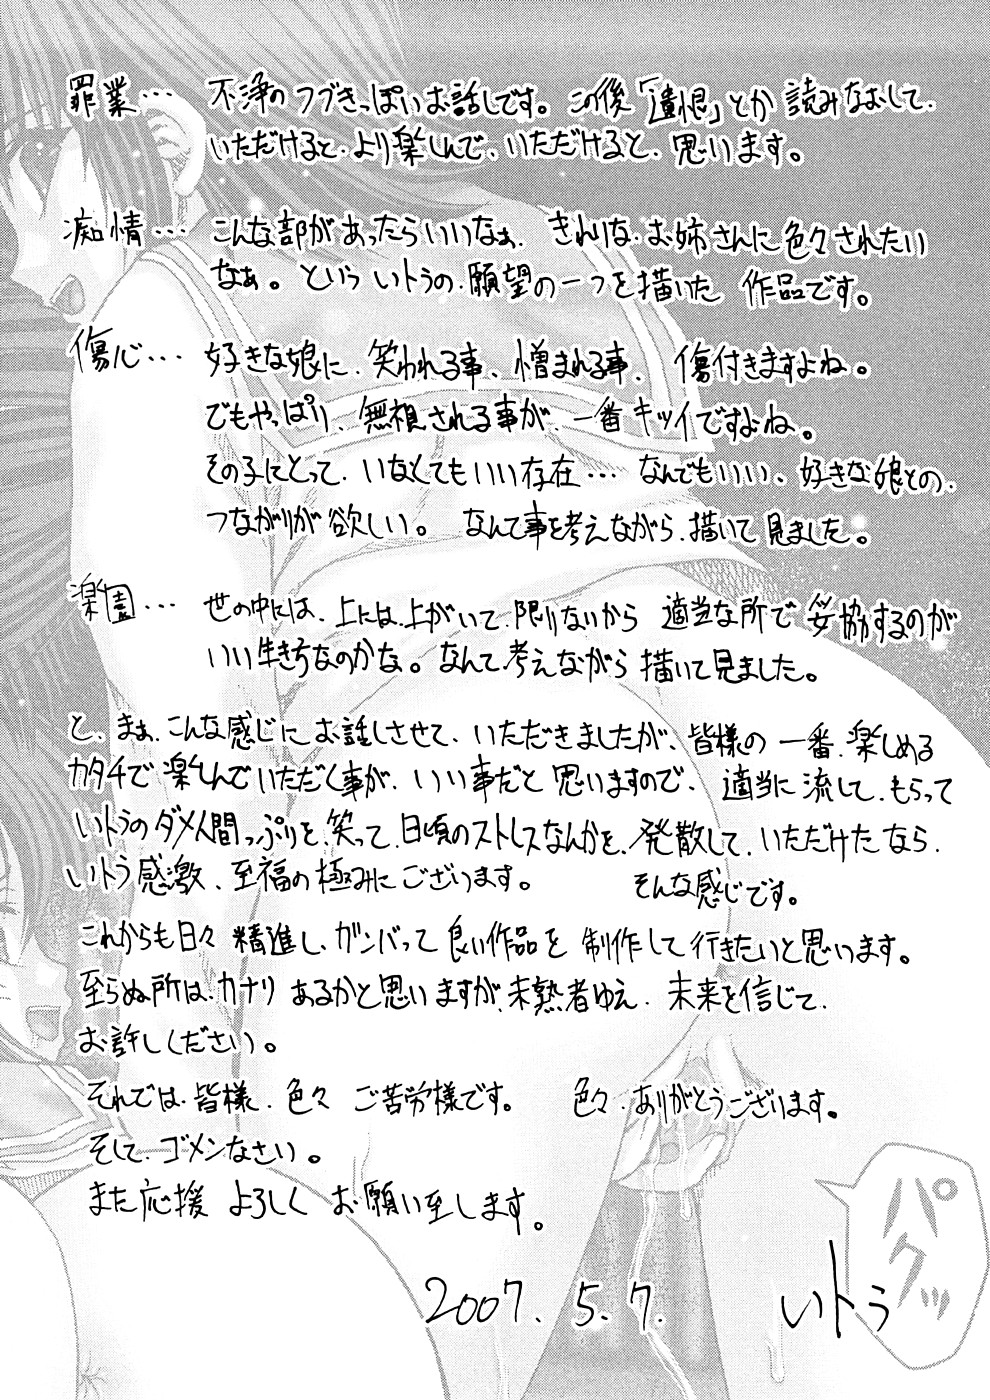 罪業… 不浄のつづきっぽいお話しです。この後「遺恨」とか読みなおして、
いただけると、より楽しんで、いただけると、思います。
痴情… こんな部があったらいいなぁ、きれいな、お姉さんに色々されたい
なぁ。という いトうの、願望の一つを描いた 作品です。
傷心… 好きな娘に、笑われる事、憎まれる事、傷付きますよね。
でもやっぱり、無視される事が、一番キツイですよね。
その子にとって、いなくてもいい存在… なんでもいい、好きな娘との、
つながりが欲しい。なんて事を考えながら、描いて見ました。
楽園… 世の中には、上には、上がいて、限りないから 適当な所で妥協するのが
いい生き方なのかな。なんて考えながら描いて見ました。
と、まぁ、こんな感じにお話しさせて、いただきましたが、皆様の一番、楽しめる
カタチで楽しんでいただく事が、いい事だと思いますので、適当に流して、もらって
いトうのダメ人間っぷりを、笑って、日頃のストレスなんかを、発散して、いただけたなら、
いトう感激、至福の極みにございます。 そんな感じです。
これからも日々精進し、ガンバって良い作品を制作して行きたいと思います。
至らぬ所は、カナリあるかと思いますが、未熟者ゆえ、未来を信じて、
お許しください。
それでは、皆様、色々ご苦労様です。 色々、ありがとうございます。
そして、ゴメンなさい。
また応援よろしくお願い至します。
2007. 5. 7. いトう
パクッ